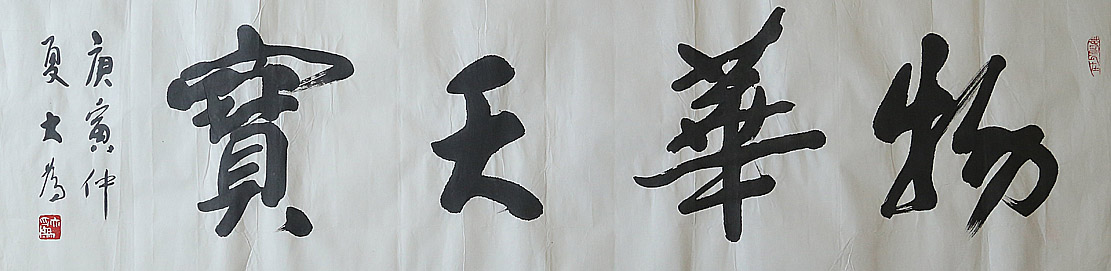 物華天寶
庚寅仲
夏大為